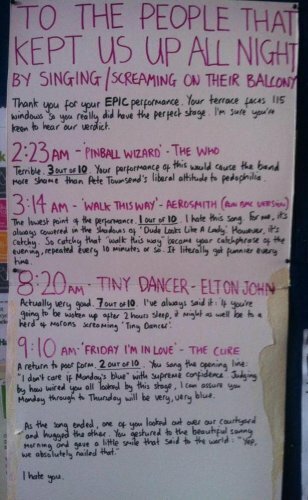 TO THE PEOPLE THAT
KEPT US UP ALL NIGHT
BY SINGING/SCREAMING ON THEIR BALCONY
Thank you for your EPIC performance. Your terrace faces 115
windows so you really did have the perfect stage. I'm sure you're
keen to hear our verdict.
2:23 AM - 'PINBALL WIZARD' - THE WHO
Terrible. 3 OUT OF 10. Your performance of this would cause the band
more shame than Pete Townsend's liberal attitude to pedophilia.
3:14 AM - 'WALK THIS WAY' - AEROSMITH (RUN DMC VERSION)
The lowest point of the performance. 1 out of 10. I hate this song. For me, it's
always cowered in the shadows of 'Dude Looks Like A Lady'. However, it's
catchy. So catchy that "walk this way" became your catchphrase of the
evening, repeated every 10 minutes or so. It literally got funnier every
time.
8:20 AM - TINY DANCER - ELTON JOHN
Actually very good. 7 out of 10. I've always said it: if you're
going to be woken up after 2 hours sleep, it might as well be to a
herd of morons screaming 'Tiny Dancer'.
9:10 AM - 'FRIDAY I'M IN LOVE' - THE CURE
A return to poor form. 2 out of 10. You sang the opening line:
"I don't care if Monday's blue" with supreme confidence. Judging
by how wired you all looked by this stage, I can assure you
Monday through to Thursday will be very, very blue.
As the song ended, one of you looked out over our courtyard
and hugged the other. You gestured to the beautiful sunny
morning and gave a little smile that said to the world: "Yep,
we absolutely nailed that"
I hate you.